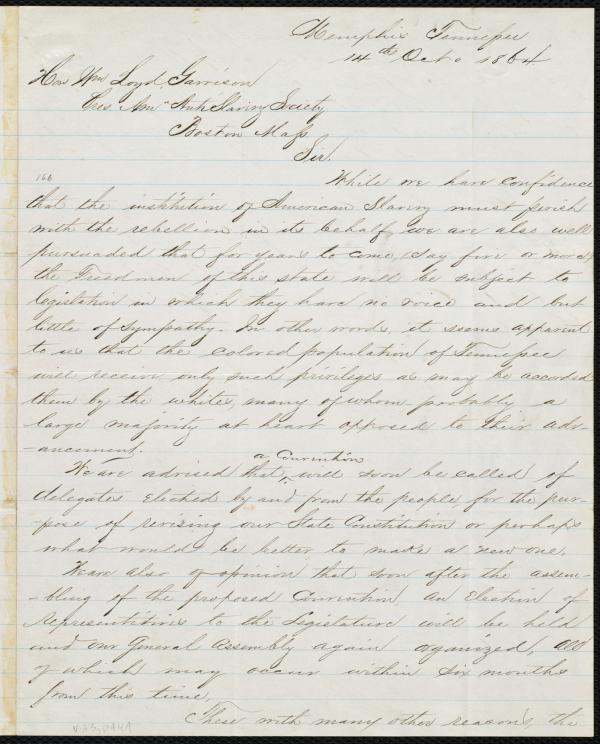 Memphis Tennessee
14th Octo 1864
Hon Wm Loyd, Garrison
Pres. Am" Anti Slavery Society
Boston Mass
Sir.
166
While we have confidence
that the institution of American Slavery must perish
with the rebellion in its behalf, we are also well
pursuaded that for years to come (say five or more)
the Freedmen of this state will be subject to
legislation in which they have no voice and but
little of sympathy. In other words, it seems apparent
to us that the colored population of Tennessee
will receive only such privileges as may be accorded
them by the whites, many of whom probably a
large majority at heart opposed to their adv-
-ancement.
We are advised that a Convention will soon be called of
delegates elected by and from the people, for the pur-
-pose of revising our State Constitution or perhaps
what would be better to make a new one.
We are also of opinion that soon after the assem-
-bling of the proposed Convention, an Election of
representitives to the Legislature will be held
and our General Assembly again organized, all
of which may occur within six months
from this time,
These with many other reasons, the